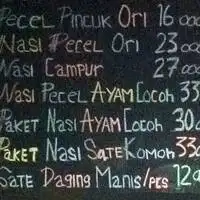 Pecel Pincuk Ori 16 000
Nasi Pecel Ori 23 000
Nasi Campur 27 000
Nasi Pecel Ayam Cocoh 33
Paket Nasi Ayam Cocoh 30
Paket Nasi Sate Komoh 33
Sate Daging Manis/pcs 12